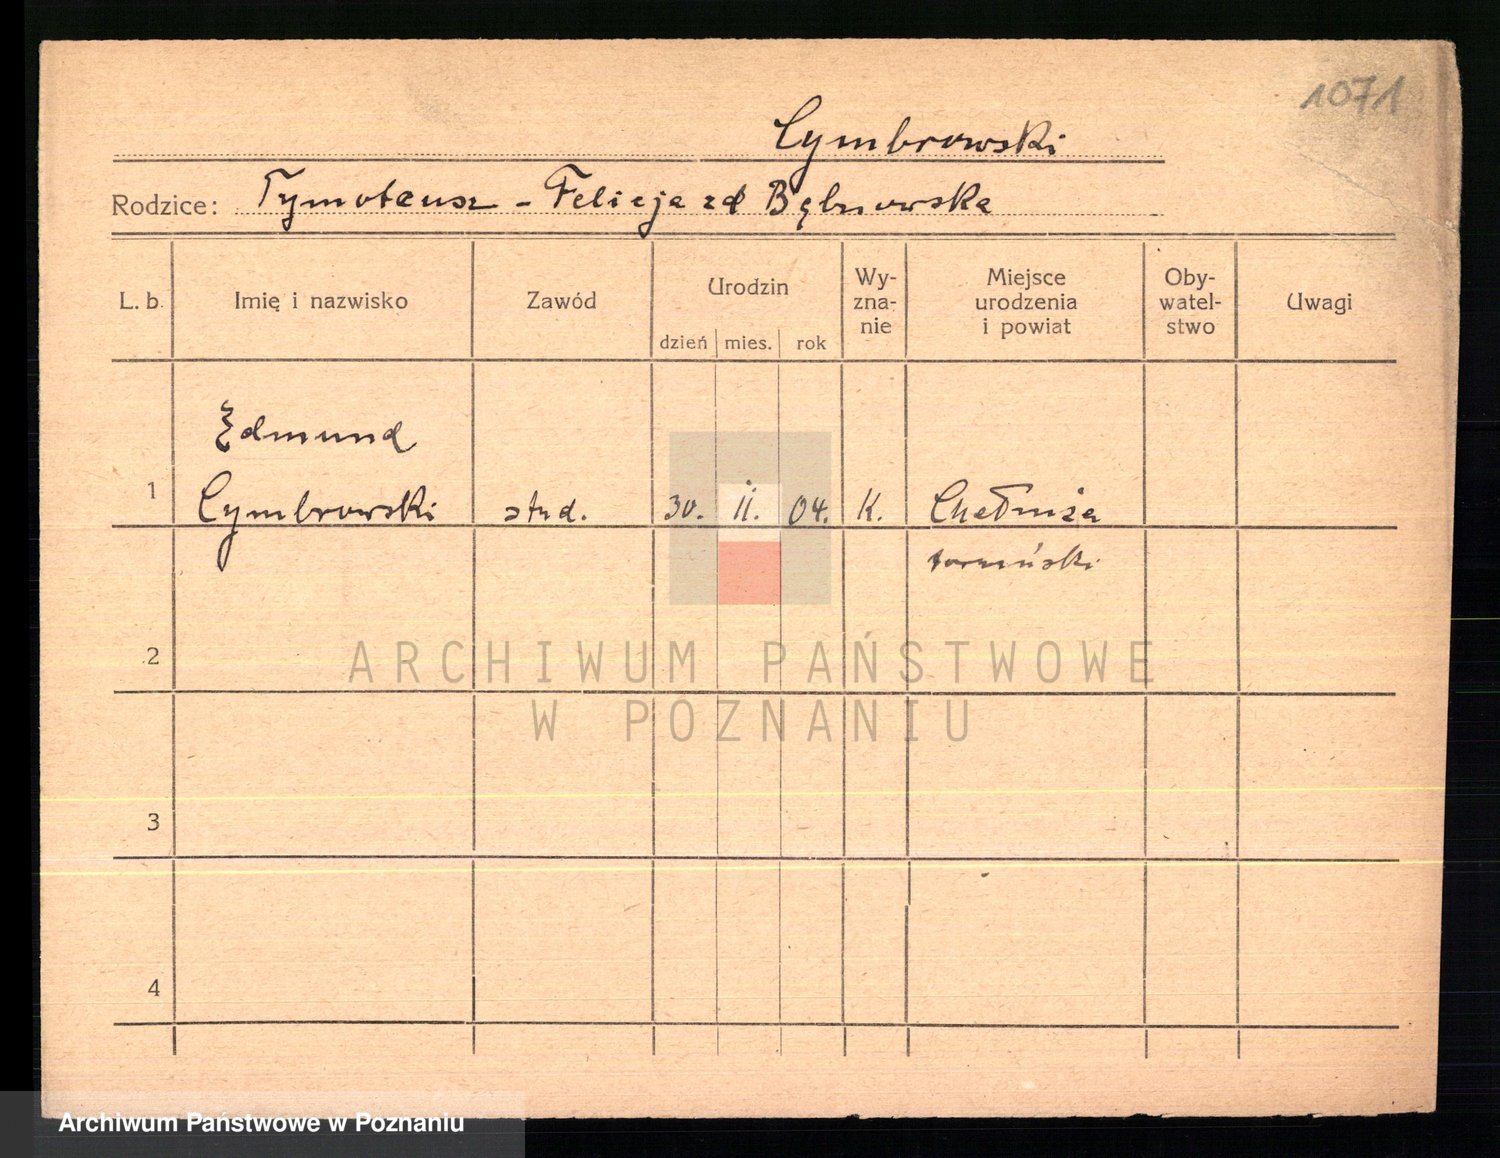 1071
Cymbrowski
Rodzice: Tymoteusz - Felicja zd Bębnowska
L. b. Imię i nazwisko Zawód Urodzin Wy-zna-nie Miejsce urodzenia i powiat Oby-watel-stwo Uwagi
dzień mies. rok
Edmund
1 Cymbrowski stud. 30. II. 04. K. Chełmża
toruński
2
ARCHIWUM PAŃSTWOWE
W POZNANIU
3
4
Archiwum Państwowe w Poznaniu